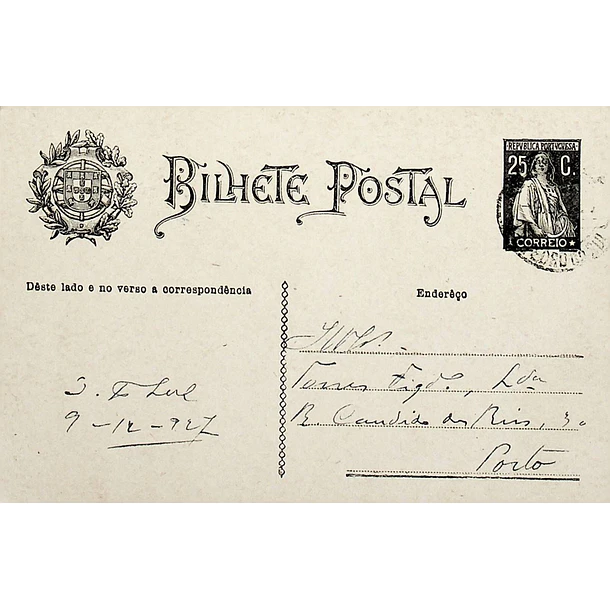 BILHETE POSTAL
REPUBLICA PORTUGUESA
25 C.
CORREIO
Dêste lado e no verso a correspondência
Endereço
9-12-927
Torres Figdo, Lda
R. Candido dos Reis, 30
Porto